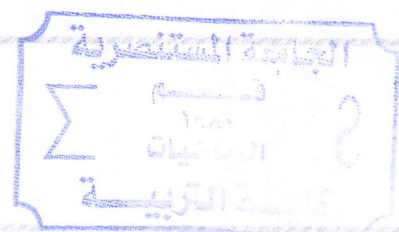 الجامعة المستنصرية
قسم
١٩٨٠
الرياضيات
كلية التربية